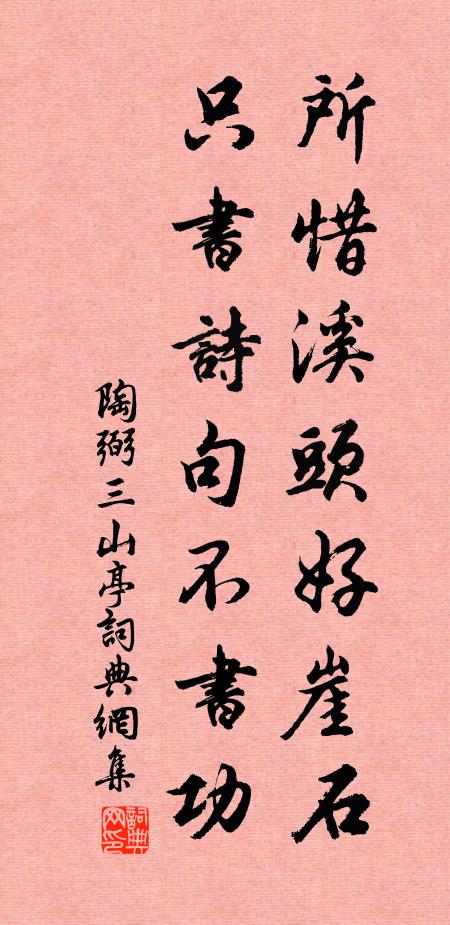 所惜溪頭好崖石
只書詩句不書功
陶弼三山亭詞典網集
詞典网印